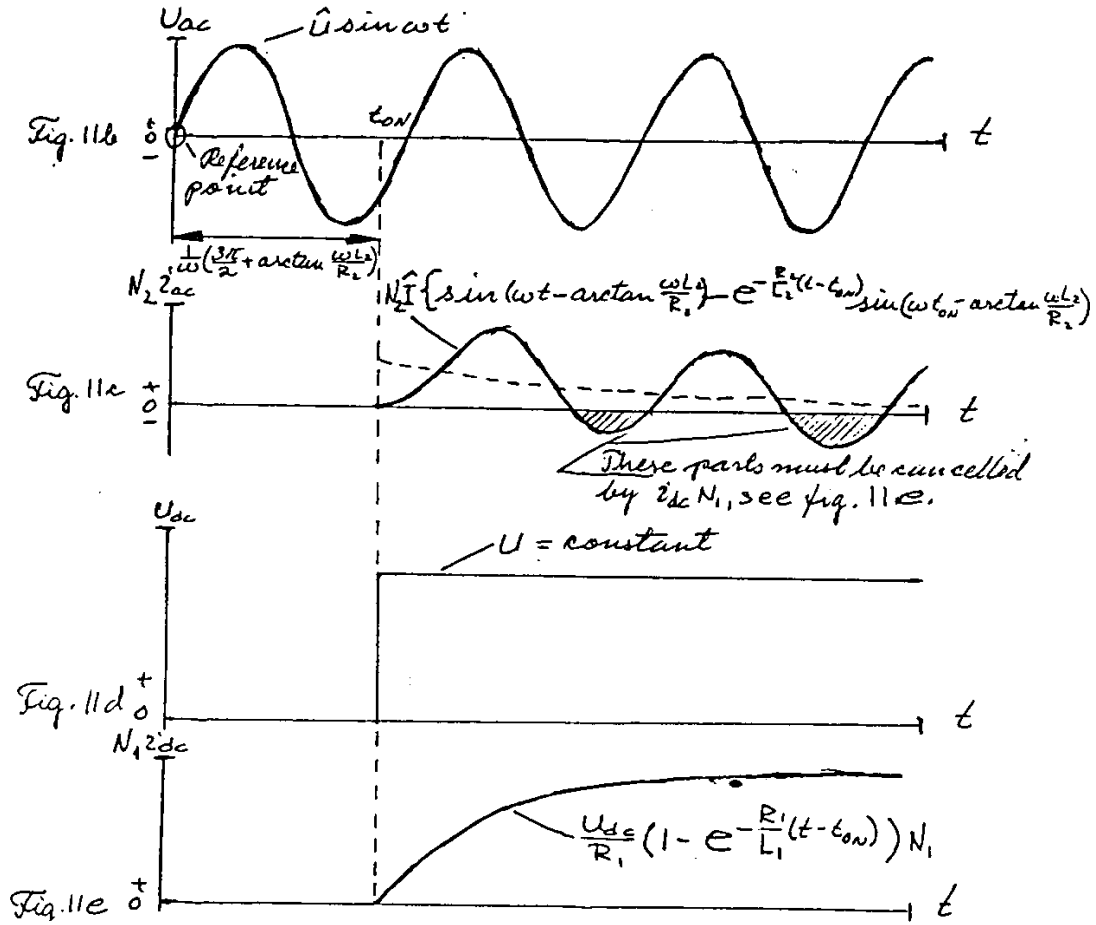 Uac
Û sin ωt
tON
Fig. 11b + 0 −
t
Reference
point
1/ω(3π/2 + arctan ωL2/R2)
N2 iac
N2Î{sin(ωt − arctan ωL2/R2) − e^−R2/L2(t−tON) sin(ωtON − arctan ωL2/R2)
Fig. 11c + 0 −
t
These parts must be cancelled
by idc N1, see fig. 11e.
Udc
U = constant
Fig. 11d + 0
t
N1 idc
Udc/R1 (1 − e^−R1/L1(t−tON)) N1
Fig. 11e + 0
t